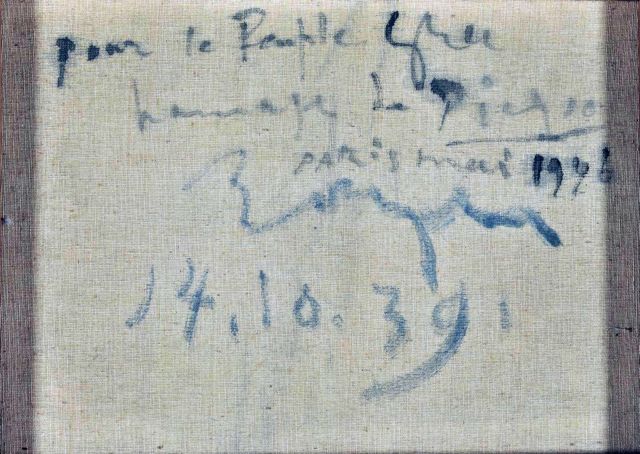 pour le Peuple Grec
hommage de Picasso
Paris mai 1946
Royan
14.10.39.